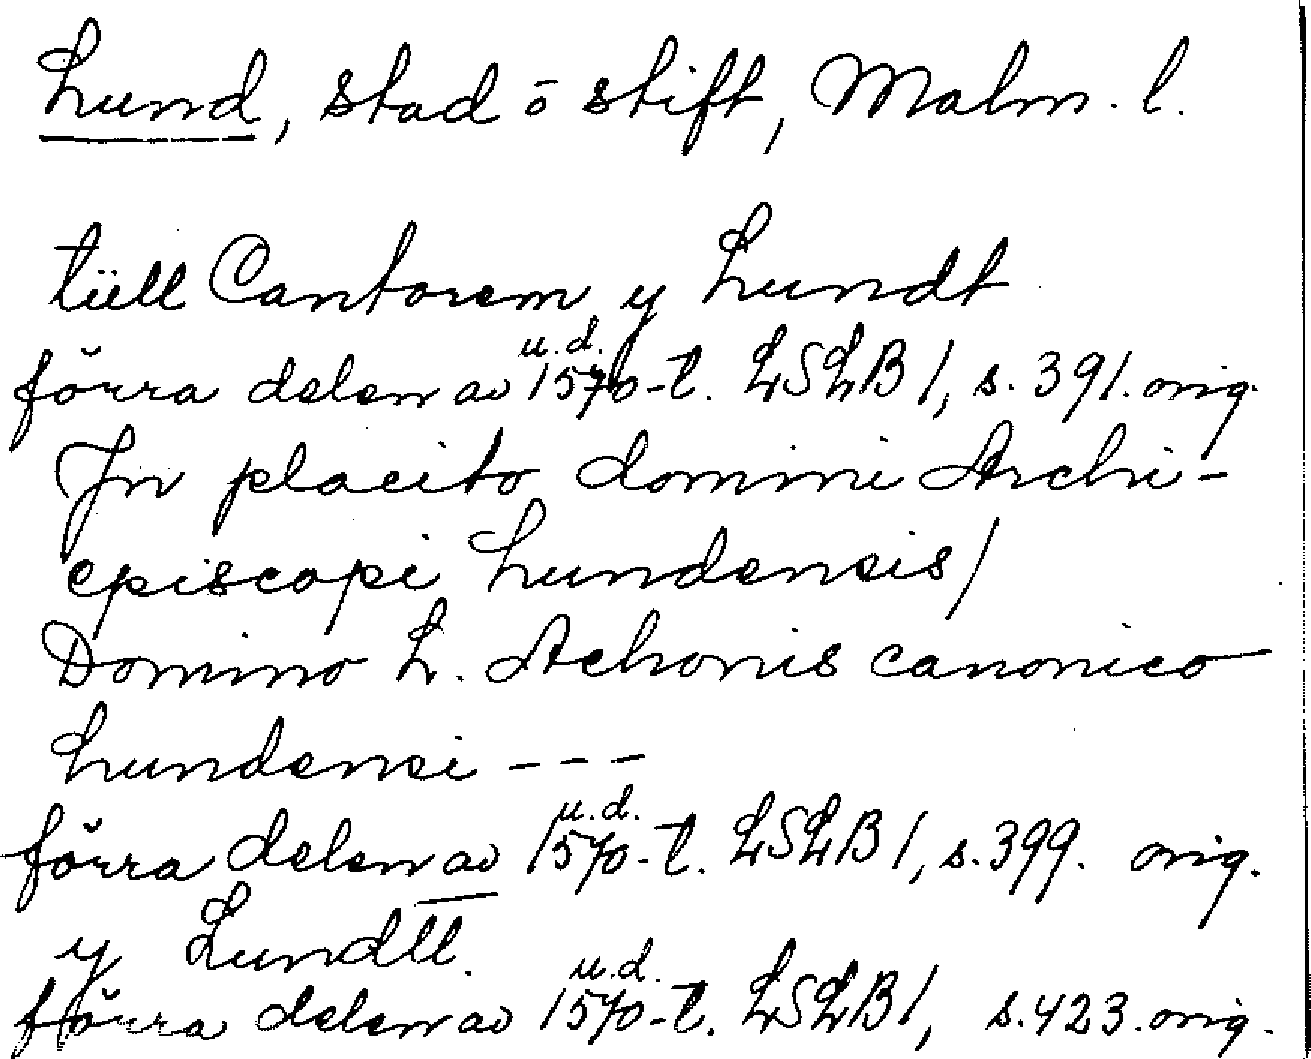 Lund, stad o stift, Malm. l.
tüll Cantorem y Lundt
u. d.
förra delen av 1570-t. LSLB 1, s. 391. orig.
In placito domini Archi-
episcopi Lundensis/
Domino L. Achonis canonico
Lundensi ---
u. d.
förra delen av 1570-t. LSLB 1, s. 399. orig.
y Lundtt.
u. d.
förra delen av 1570-t. LSLB 1, s. 423. orig.